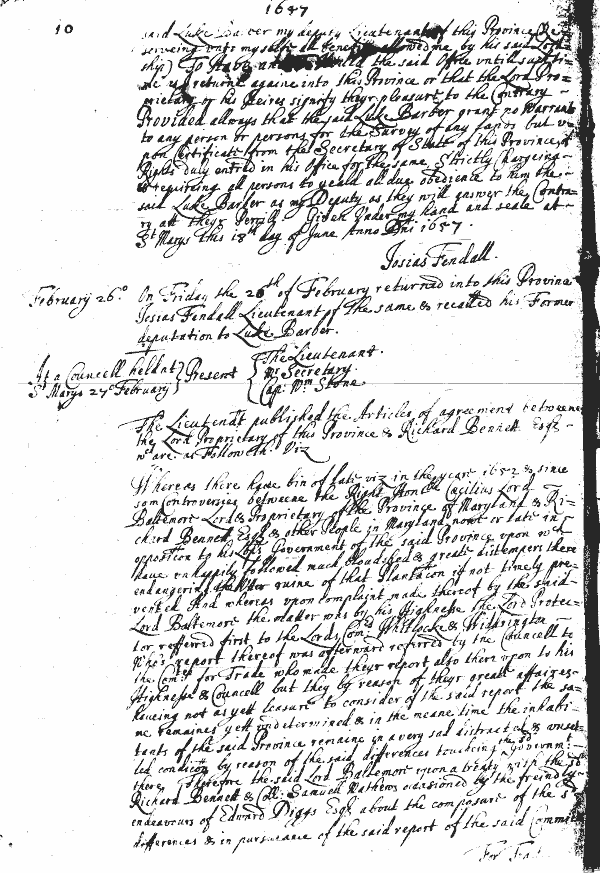 1657
10
said Luke Barber my deputy Lieutenant of this Province (Re=
serveing vnto myselfe all benefitt allowed me by his said Lord=
ship) To Have and the said Office vntill such ti=
me as I retourne againe into this Province or that the Lord Pro=
prietary or his Heires signify theyr pleasure to the Contrary
Provided always that the said Luke Barber grant no Warrant
to any person or persons for the Survey of any lands but v=
pon Certificate from the Secretary of State of this Province of
Rights duly entred in his Office for the same, Strictly Chargeing
& requireing all persons to yeald all due obedience to him the
said Luke Barber as my Deputy as they will answer the Contra=
ry att theyr Perrill Given Vnder my hand and seale at
St Marys this 18th day of June Anno Dni 1657.
Josias Fendall.
February 26.o On Friday the 26th of February returned into this Province
Josias Fendall Lieutenant of the same & recalled his Former
deputation to Luke Barber.
At a Councell held at Present The Lieutenant.
St Marys 27o February Mr Secretary.
Cap: Wm Stone
The Lieutent published the Articles of agreement betweene
the Lord Proprietary of this Province & Richard Bennett Esqr
wch are as Followeth. Viz
Whereas there have bin of late viz in the yeare 1652 & since
som Controversies betweene the Right Honble Cæcilius Lord
Baltemore Lord & Proprietary of the Province of Maryland & Ri=
chard Bennett Esqr & other People in Maryland now or late in
opposition to his Lops Government of the said Province vpon wch
have vnhappily followed much bloudshed & great distempers there
endangering the vtter ruine of that Plantacon if not timely pre=
vented And whereas vpon complaint made thereof by the said
Lord Baltemore the matter was by his Highnesse the Lord Protec=
tor refferred first to the Lords Comrs Whitlocke & Widdrington
Who's report thereof was afterward referred by the Councell to
the Comtee for Trade who made theyr report also there vpon to his
Highnesse & Councell but they by reason of theyr great affaires
haveing not as yett leasure to consider of the said report the sa=
me remaines yett vndetermined & in the meane time the inhabi=
tants of the said Province remaine in a very sad distracted & vnset=
led condicon by reason of the said differences touching the sd Governmt:
there, Therefore the said Lord Baltemore vpon a treaty with the sd
Richard Bennett & Coll: Samuell Mathews occasioned by the freindly
endeavours of Edward Diggs Esqr about the composure of the sd
differences & in pursuance of the said report of the said Committee
For Trade